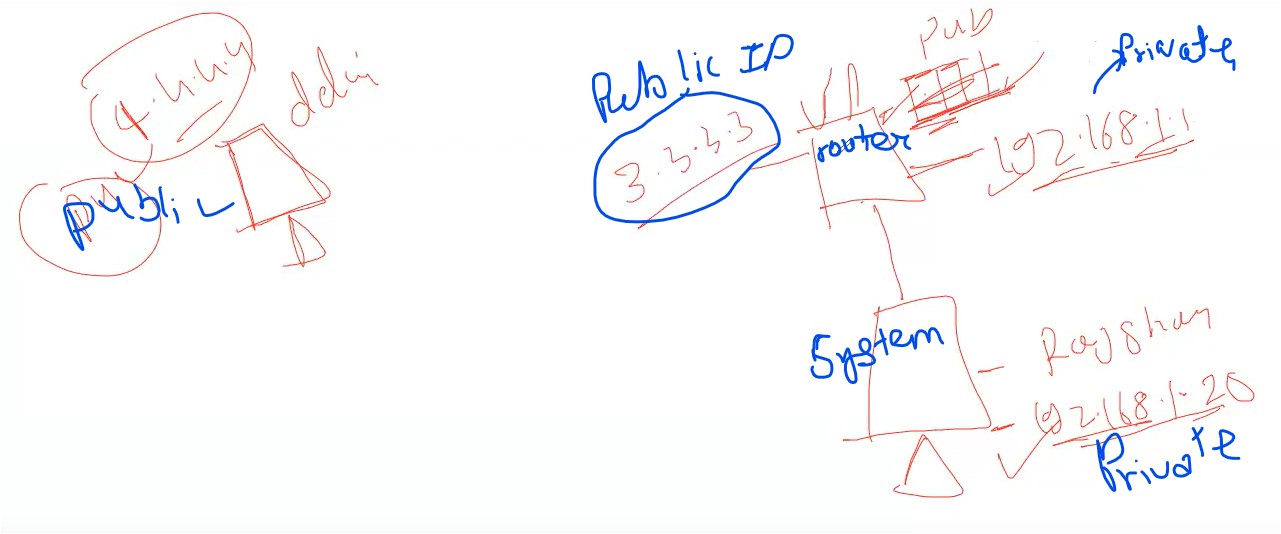 4.4.4.4
delhi
Public
Public IP
3.3.3.3
router
Pub
Private
192.168.1.1
System
192.168.1.20
Private